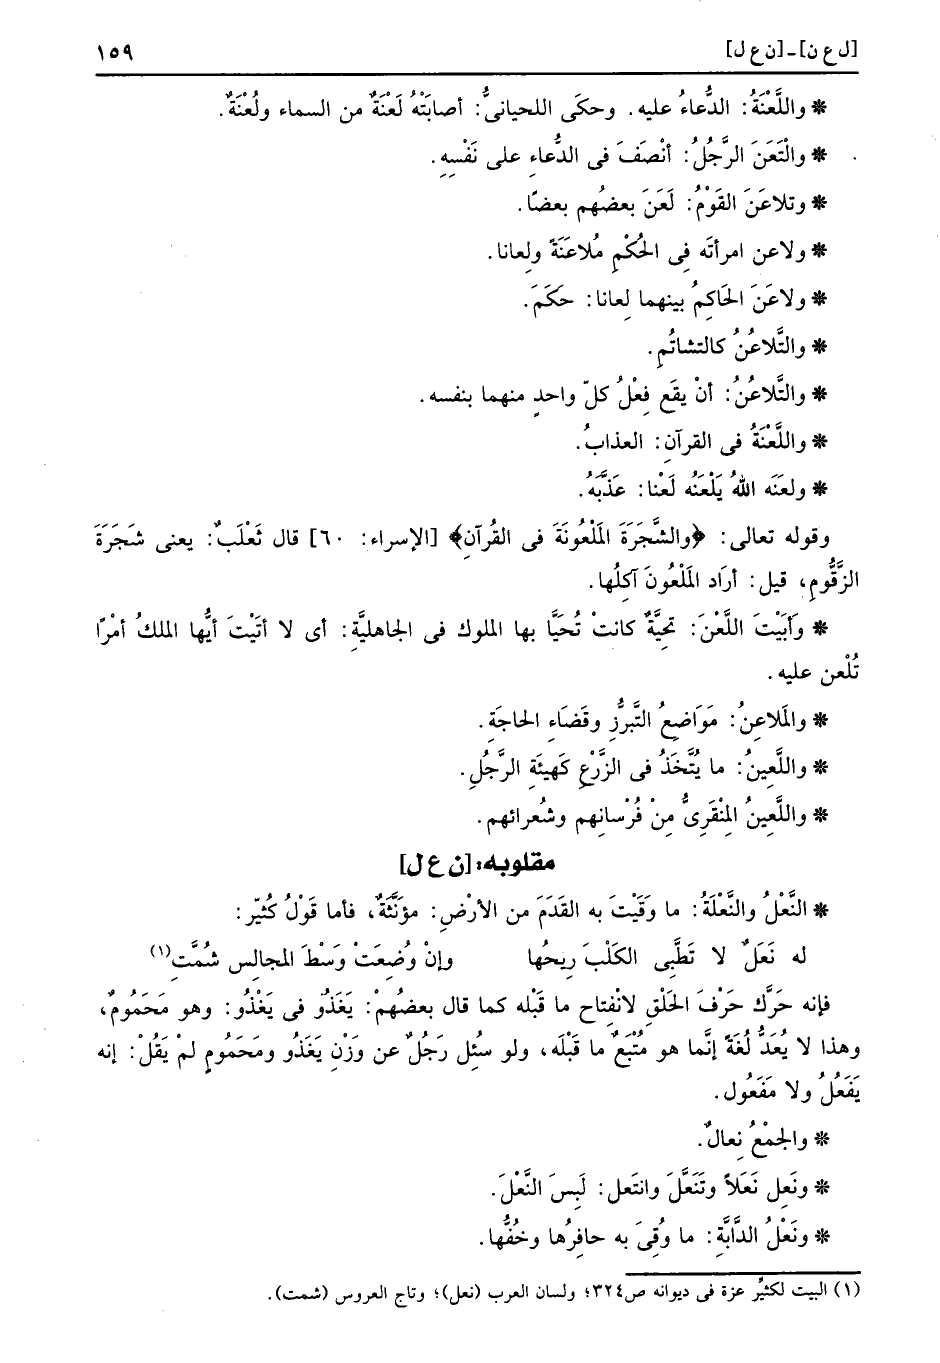 [ل ع ن] - [ن ع ل] ١٥٩
* واللَّعْنَةُ: الدُّعاءُ عليه. وحكَى اللحيانىُّ: أصابَتْهُ لَعْنَةٌ من السماء ولُعْنَةٌ.
* والْتَعَنَ الرَّجُلُ: أنْصَفَ فى الدُّعاءِ على نَفْسِهِ.
* وتلاعَنَ القَوْمُ: لَعَنَ بعضُهم بعضًا.
* ولاعن امرأتَه فِى الحُكْمِ مُلاعَنَةً ولِعانا.
* ولاعَنَ الحَاكِمُ بينهما لِعانا: حَكَمَ.
* والتَّلاعُنُ كالتشاتُمِ.
* والتَّلاعُنُ: أنْ يقَع فِعْلُ كلّ واحدٍ منهما بنفسه.
* واللَّعْنَةُ فى القرآنِ: العذابُ.
* ولعَنَه اللهُ يَلْعَنُه لَعْنا: عَذَّبَهُ.
وقوله تعالى: ﴿والشَّجَرَةَ المَلْعُونَةَ فى القُرآنِ﴾ [الإسراء: ٦٠] قال ثَعْلَبٌ: يعنى شَجَرَةَ
الزَّقُّومِ، قيل: أرَاد المَلْعُونَ آكلُها.
* وَأبَيْتَ اللَّعْنَ: تحِيَّةٌ كانتْ تُحَيَّا بها الملوك فى الجاهليَّةِ: أى لا أتَيْتَ أيُّها الملكُ أمْرًا
تُلْعن عليه.
* والمَلاعِنُ: مَوَاضِعُ التَّبرُّزِ وقَضَاءِ الحاجَةِ.
* واللَّعِينُ: ما يُتَّخَذُ فى الزَّرْعِ كَهيئَةِ الرَّجُلِ.
* واللَّعِينُ المِنْقَرِىُّ مِنْ فُرْسانِهم وشُعرائهم.
مقلوبه: [ن ع ل]
* النَّعْلُ والنَّعْلَةُ: ما وَقَيْتَ به القَدَمَ من الأرْضِ: مؤنَّثَةٌ، فأما قَوْلُ كُثَيّرِ:
له نَعَلٌ لا تَطَّبِى الكَلْبَ رِيحُها وإنْ وُضِعَتْ وَسْطَ المجالس شُمَّتِ(١)
فإنه حَرَّك حَرْفَ الحَلْقِ لانْفِتاح ما قَبْله كما قال بعضُهمْ: يَغَذُو فى يَغْذُو: وهو مَحَمُومٌ،
وهذا لا يُعَدُّ لُغَةً إنَّما هو مُتْبَعٌ ما قَبْلَه، ولو سئُل رَجُلٌ عن وَزْنِ يَغَذُو ومَحَمُومٍ لمْ يَقُلْ: إنه
يَفَعَلُ ولا مَفَعُول.
* والجمْعُ نِعالٌ.
* ونَعِل نَعَلاً وتَنَعَّلَ وانتَعل: لَبِسَ النَّعْلَ.
* ونَعْلُ الدَّابَّةِ: ما وُقِىَ به حافِرُها وخُفُّها.
(١) البيت لكثيِّر عزة فى ديوانه ص٣٢٤؛ ولسان العرب (نعل)؛ وتاج العروس (شمت).